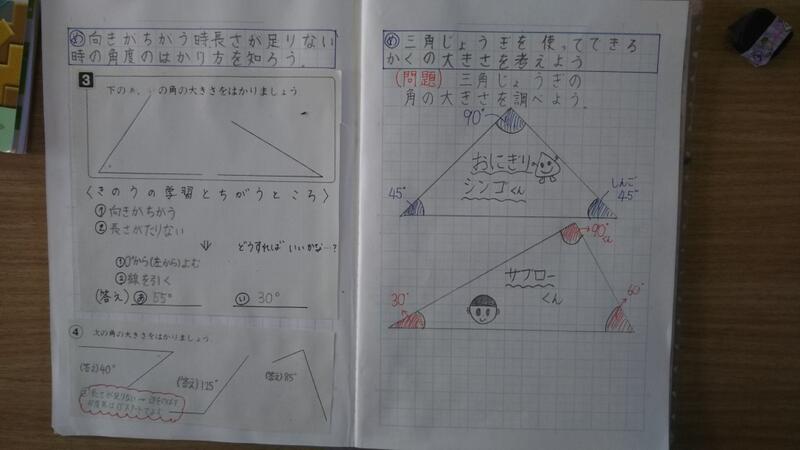 め 向きがちがう時、長さが足りない
時の角度のはかり方を知ろう。
3
下のあ、いの角の大きさをはかりましょう
〈きのうの学習とちがうところ〉
㋐向きがちがう
長さがたりない
⇓ どうすればいいかな…?
①0°から(左から)よむ
②線を引く
(答え) あ 55° い 30°
4
次の角の大きさをはかりましょう
(答え)40°
(答え)125°
(答え)85°
長さが足りない→
め 三角じょうぎを使ってできる
かくの大きさを考えよう
(問題) 三角じょうぎの
角の大きさを調べよう。
90°
おにぎり
シンゴくん
45°
しんご
45°
90°
くん
サブロー
くん
30°
60°